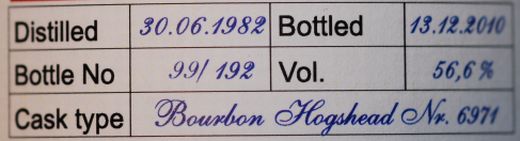 Distilled 30.06.1982 Bottled 13.12.2010
Bottle No 99/ 192 Vol. 56,6 %
Cask type Bourbon Hogshead Nr. 6971